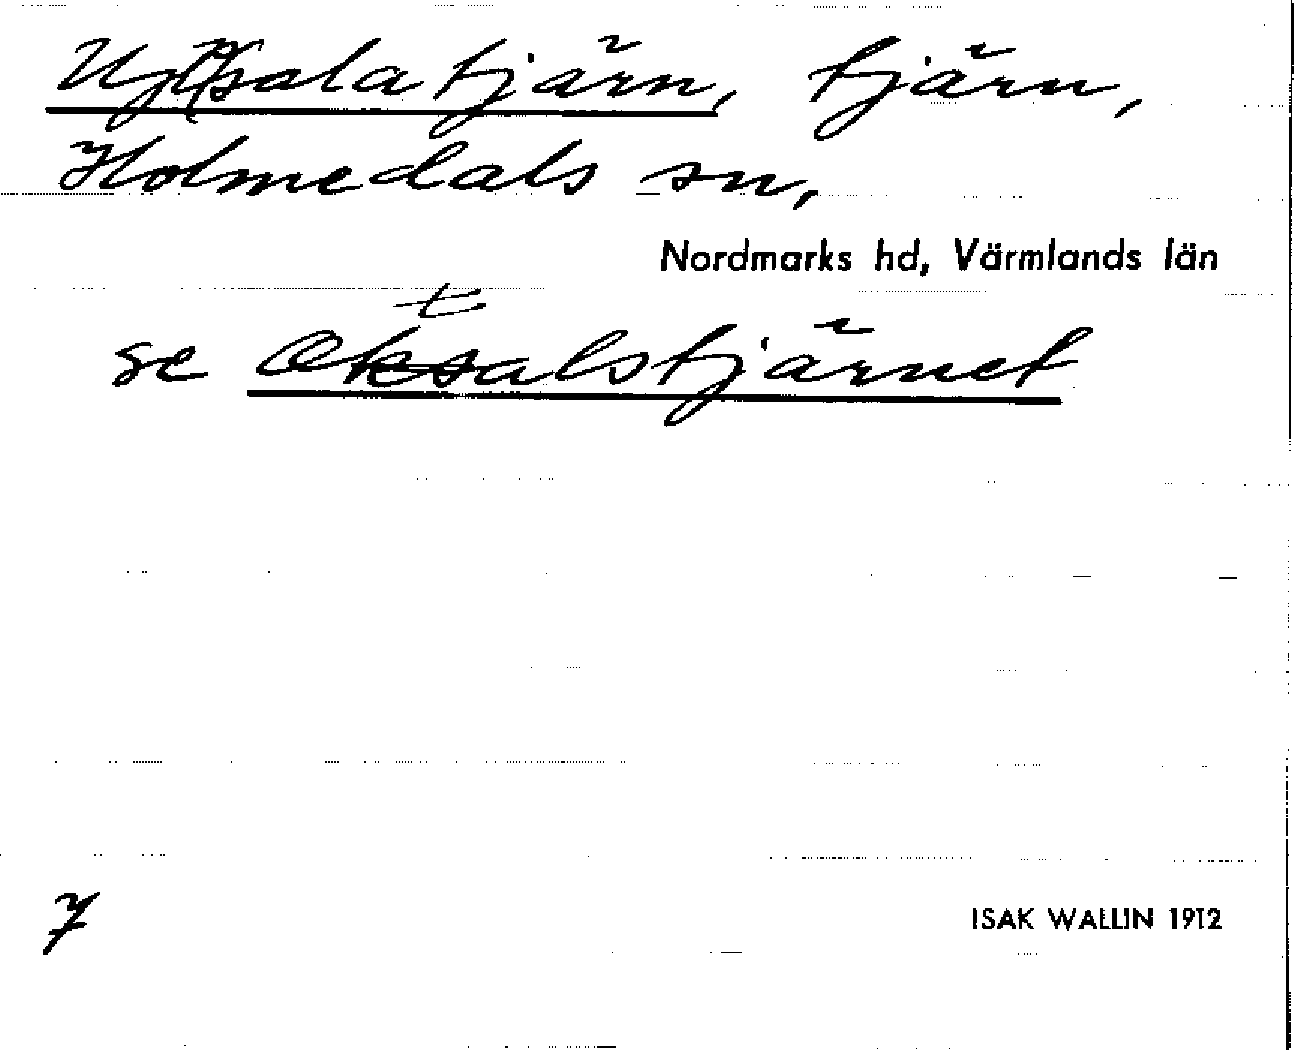 Upsala tjärn, tjärn,
Holmedals sn,
Nordmarks hd, Värmlands län
t
se Oksalstjärnet
7
ISAK WALLIN 1912